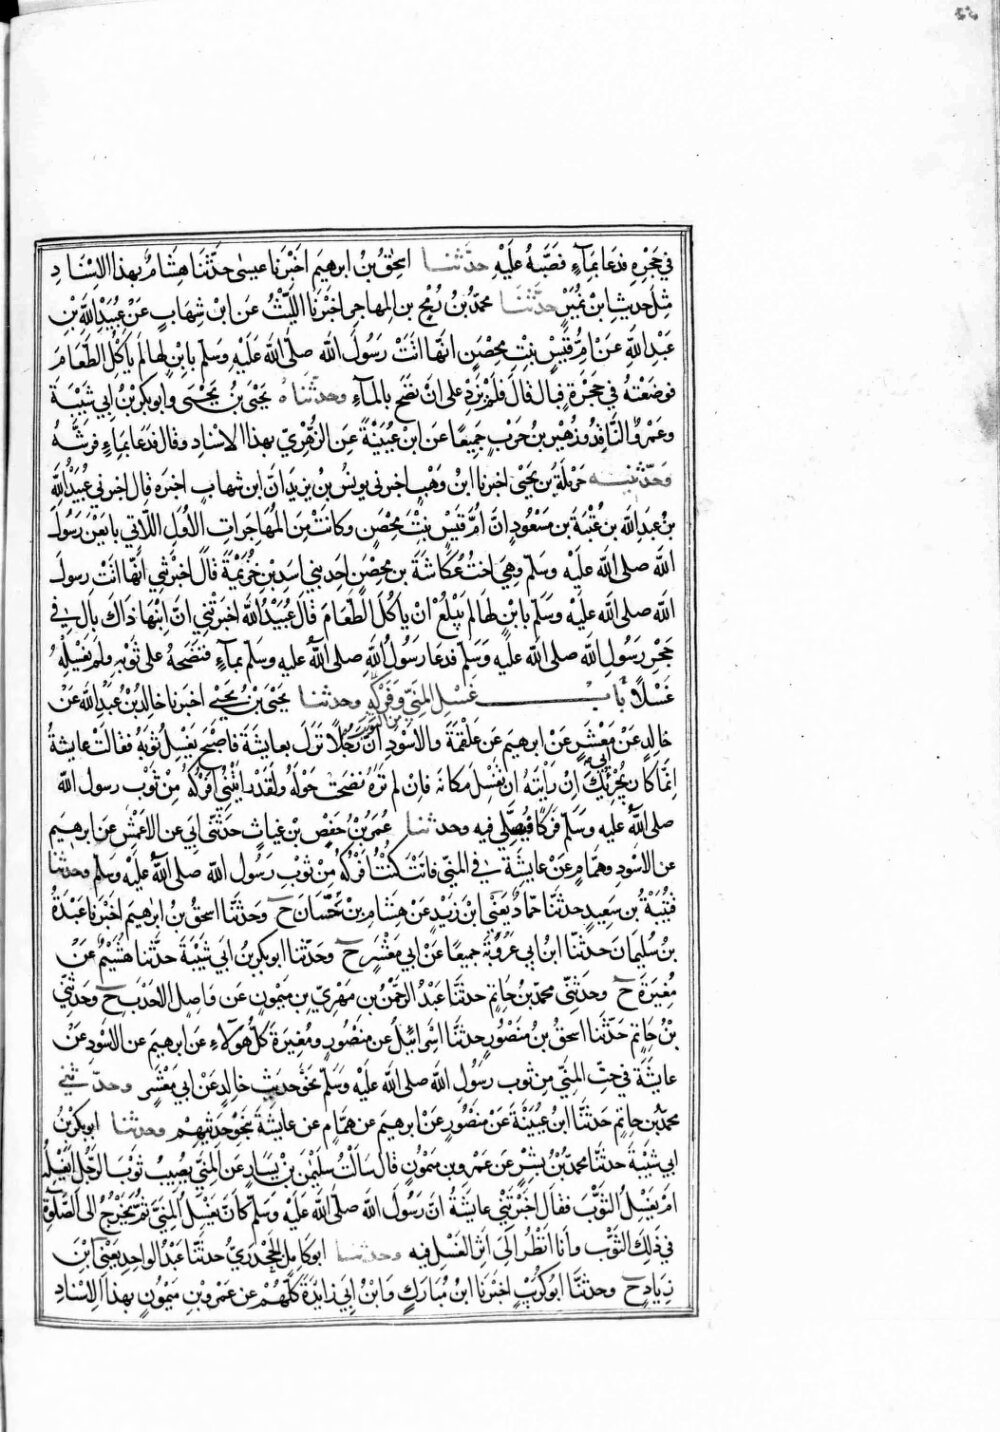 في حَجْرِهِ فدَعَا بِمَآءٍ فَصَبَّهُ عَلَيْهِ حدّثنا اسحٰق بْنُ ابرهيم اخْبَرَنا عيسٰى حدّثَنَا هِشَامٌ بهذا الاِسْنَادِ
مثلَ حديثِ ابْنِ نُمَيْرٍ حدّثنَا محمّدُ بنُ رُمْحِ بن المهاجر اخبَرَنا اللَّيْثُ عن ابْنِ شِهَابٍ عَنْ عُبَيْدِ اللهِ بْنِ
عَبْدِ اللهِ عَنْ اُمِّ قَيْسٍ بِنْتِ مِحْصَنٍ انّهَا اتَتْ رَسُولَ الله صلّى الله عَلَيْهِ وسَلّم بِابْنٍ لهَا لَمْ يَاكُلِ الطّعَامَ
فوضعَتْهُ في حَجْرِهِ فبَالَ قالَ فَلَمْ يَزِدْ على انْ نَضَحَ بالمآءِ وحدثناه يَحْيَى بنُ يحْيٰى وابو بكر بْنُ ابي شَيْبَةَ
وعمْرٌو النَّاقِدُ وزُهَيْرُ بنُ حَرْبٍ جَمِيعًا عَن ابْنِ عُيَيْنَةَ عَنِ الزُّهْرِيِّ بهذا الاسْنادِ وقال فدَعَا بِمَاءٍ فرَشَّهُ
وحَدّثنيه حَرْمَلَةُ بن يَحْيٰى اخبرنا ابنُ وَهْبٍ اخبرني يونسُ بن يزيد انّ ابن شهابٍ اخبَره قال اخبرني عُبَيْدُ اللهِ
بن عبد الله بن عُتْبَةَ بن مَسْعُودٍ انّ اُمَّ قَيْسٍ بنتَ مِحْصَنٍ وكانَتْ مِنَ المُهَاجِراتِ الاُوَلِ اللّاتي بايَعْنَ رَسُولَ
الله صلى الله عَلَيْه وسَلّم وهيَ اختُ عُكّاشَةَ بن مِحْصَنٍ احد بني اسَدِ بنِ خُزَيْمَةَ قالَ اخبرَتْني أنّهَا اتَتْ رسولَ
الله صلى الله عَلَيْه وَسَلّم بابْنٍ لهَا لم يَبْلُغْ انْ ياكُلَ الطّعَامَ قَالَ عُبَيْدُ اللهِ اخبَرَتْني انّ ابْنَهَا ذَاكَ بالَ في
حَجْرِ رَسُولِ الله صلى الله عليه وسَلّم فدعَا رَسُولُ اللهِ صلى اللهُ عليه وسَلّم بمآءٍ فنضَحَهُ على ثَوْبِهِ ولَمْ يَغْسِلْهُ
غَسْلًا بابُ غَسْلِ المَنِيّ وفَرْكِهِ من الثوب وحدثنا يَحْيٰى بْنُ يَحْيٰى اخبرنا خالدُ بْنُ عَبْدِ اللهِ عَنْ
خالدٍ عن ابي مَعْشَرٍ عَنْ ابرهيمَ عن عَلقَمَةَ والاسْوَدِ انّ رَجُلًا نَزَل بعايشةَ فاصْبَحَ يَغْسِلُ ثَوْبَهُ فقالَتْ عايشةُ
اِنّمَا كان يُجْزِئُكَ اِنْ رَأَيْتَهُ ان تغْسِلَ مكانَه فاِنْ لم تَرَهُ نضَحْتَ حَوْلَهُ ولَقَدْ رَايْتُنِي اَفْرُكُهُ مِنْ ثَوْبِ رسول الله
صلى اللهُ عليه وسَلّم فَرْكًا فيُصَلّي فيه وحدثنا عُمَرُ بْنُ حَفْصِ بن غياثٍ حدّثني ابي عن الاعمَشِ عن ابرهيمَ
عن الاسْوَدِ وهَمّامٍ عنْ عايشَةَ في المَنِيّ قالتْ كُنْتُ اَفْرُكُهُ مِنْ ثَوْبِ رَسُولِ الله صلى اللهُ عَلَيْه وسَلّم وحدثنا
قُتَيْبَةُ بن سَعِيدٍ حدّثنا حمّادٌ يَعْنِي ابن زَيْدٍ عَنْ هِشَامِ بْنِ حَسَّانَ ح وحَدّثنا اسحقُ بن ابرهيم اخبَرنا عَبْدَةُ
بن سُلَيمانَ حدّثنا ابنُ ابي عَرُوبَةَ جميعًا عَنْ ابي مَعْشَرٍ ح وحَدّثنا ابو بكر بنُ ابي شَيْبَةَ حدّثنا هُشَيْمٌ عَنْ
مُغِيرَةَ ح وحَدثَنِي محمّد بن حَاتِمٍ حدثنَا عَبْدُ الرّحمٰنِ بن مَهْدِيّ بن مَيمونٍ عَن وَاصِلٍ الاَحْدَبِ ح وحَدثنِي
بْنُ حَاتِمٍ حَدّثنا اسحقُ بن مَنْصُورٍ حدثنا اسْرائيلُ عن مَنْصُورٍ ومُغِيرَةَ كلُّ هٰؤلآءِ عَن ابرهيمَ عن الاسْوَدِ عَنْ
عايشَةَ في حَتِّ المَنِيّ مِن ثوب رَسُولِ الله صلى الله عَلَيْه وسَلّم نَحْوَ حَدِيثِ خالِدٍ عَنْ ابي مَعْشَرٍ وحدّثني
محمّد بن حاتِمٍ حَدّثنا ابْنُ عُيَيْنَةَ عَن مَنْصُورٍ عَنْ ابرهيمَ عن هَمّامٍ عن عايشَةَ بنَحْوِ حَدِيثِهِمْ وحدثنا ابو بكر بْنُ
ابي شَيْبَةَ حدّثنا محمّد بْنُ بِشْرٍ عَن عَمْرو بن مَيْمُونٍ قال سَالْتُ سُلَيْمٰنَ بْنَ يَسَارٍ عن المَنِيّ يُصِيبُ ثَوْبَ الرَّجُلِ اَيَغْسِلُهُ
امْ يَغْسِلُ الثَّوْبَ فقال اخبَرَتْني عايشةُ انّ رَسُولَ الله صلّى الله عَلَيْه وَسَلّم كانَ يَغْسِلُ المَنِيّ ثُمَّ يَخْرُجُ الى الصَّلٰوةِ
في ذٰلك الثَّوْبِ وانَا انْظُرُ اِلَى أثَرِ الغَسْلِ فِيه وحدثنا ابو كَامِلٍ الجَحْدَرِيّ حدّثنا عَبْدُ الواحِدِ يَعْنِي ابْنَ
زِيَادٍ ح وحدثنَا ابو كُرَيْبٍ اخبَرَنا ابنُ مُبَارَكٍ وابنُ ابي زائِدَةَ كُلّهُمْ عن عمْرو بْنِ مَيْمُونٍ بهذا الاِسْنادِ